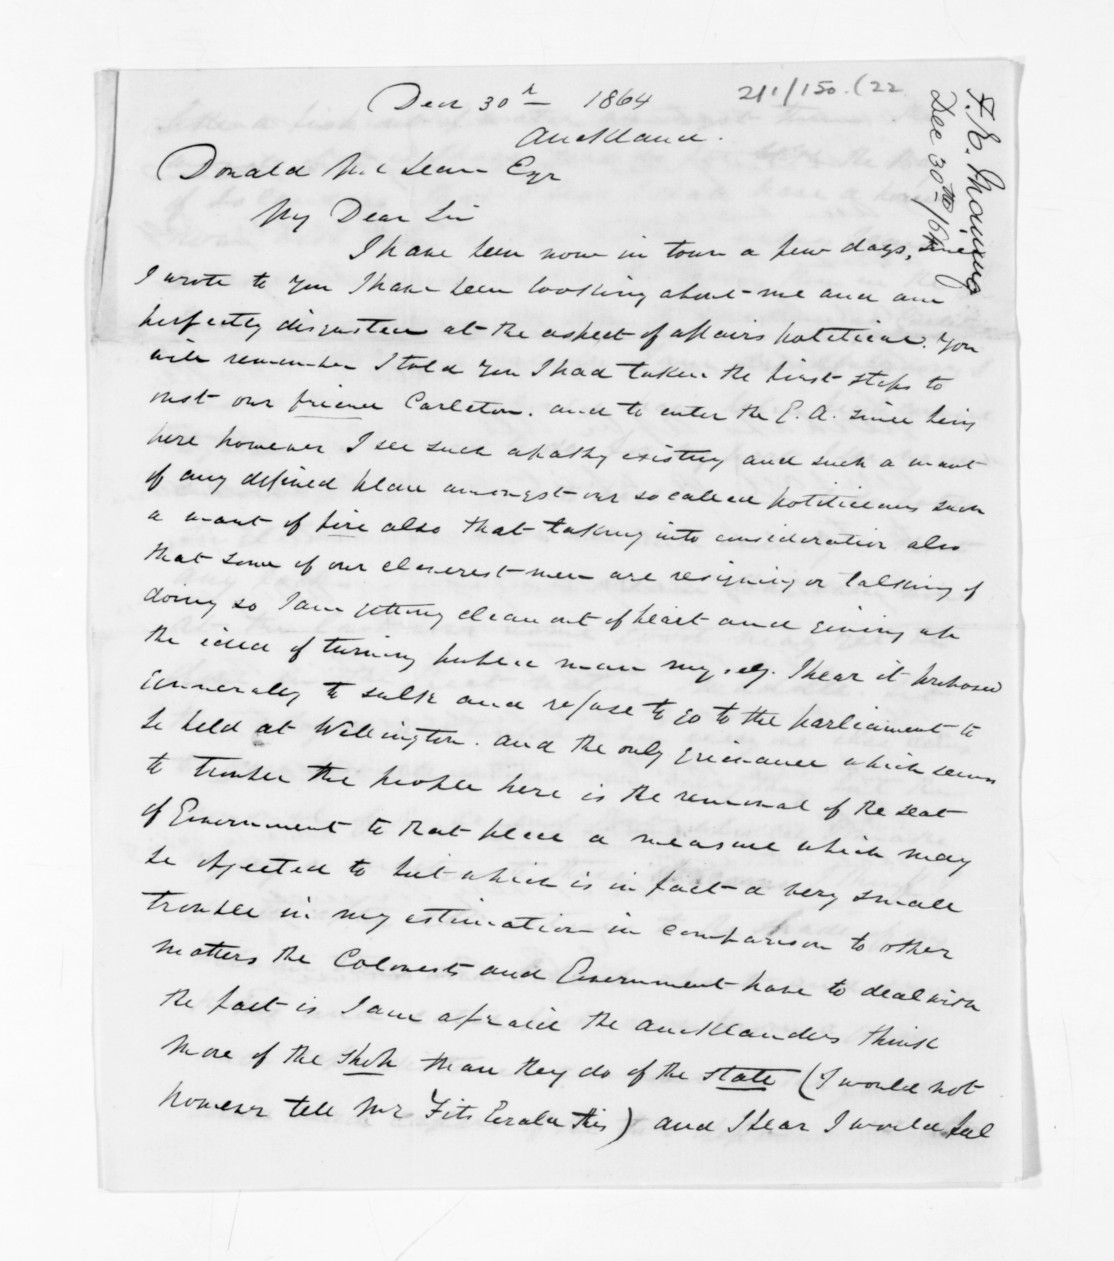 Decr 30th 1864
2/1/150. (22
Auckland.
F. E. Maning
Dec 30th /64
Donald McLean Esqr
My Dear Sir
I have been now in town a few days, since
I wrote to you I have been looking about me and am
perfectly disgusted at the aspect of affairs political. You
will remember I told you I had taken the first steps to
oust our friend Carleton. and to enter the G. A. since being
here however I see such apathy existing and such a want
of any defined plan amongst our so called politicians such
a want of fire also that taking into consideration also
that some of our cleverest men are resigning or talking of
doing so I am getting clean out of heart and giving up
the idea of turning public man myself. I hear it proposed
generally to sulk and refuse to go to the parliament to
be held at Wellington. and the only grievance which seems
to trouble the people here is the removal of the seat
of Government to that place a measure which may
be objected to but which is in fact a very small
trouble in my estimation in comparison to other
matters the Colonists and Government have to deal with
the fact is I am afraid the Aucklanders think
more of the shop than they do of the state (I would not
however tell Mr FitzGerald this) and I fear I would feel